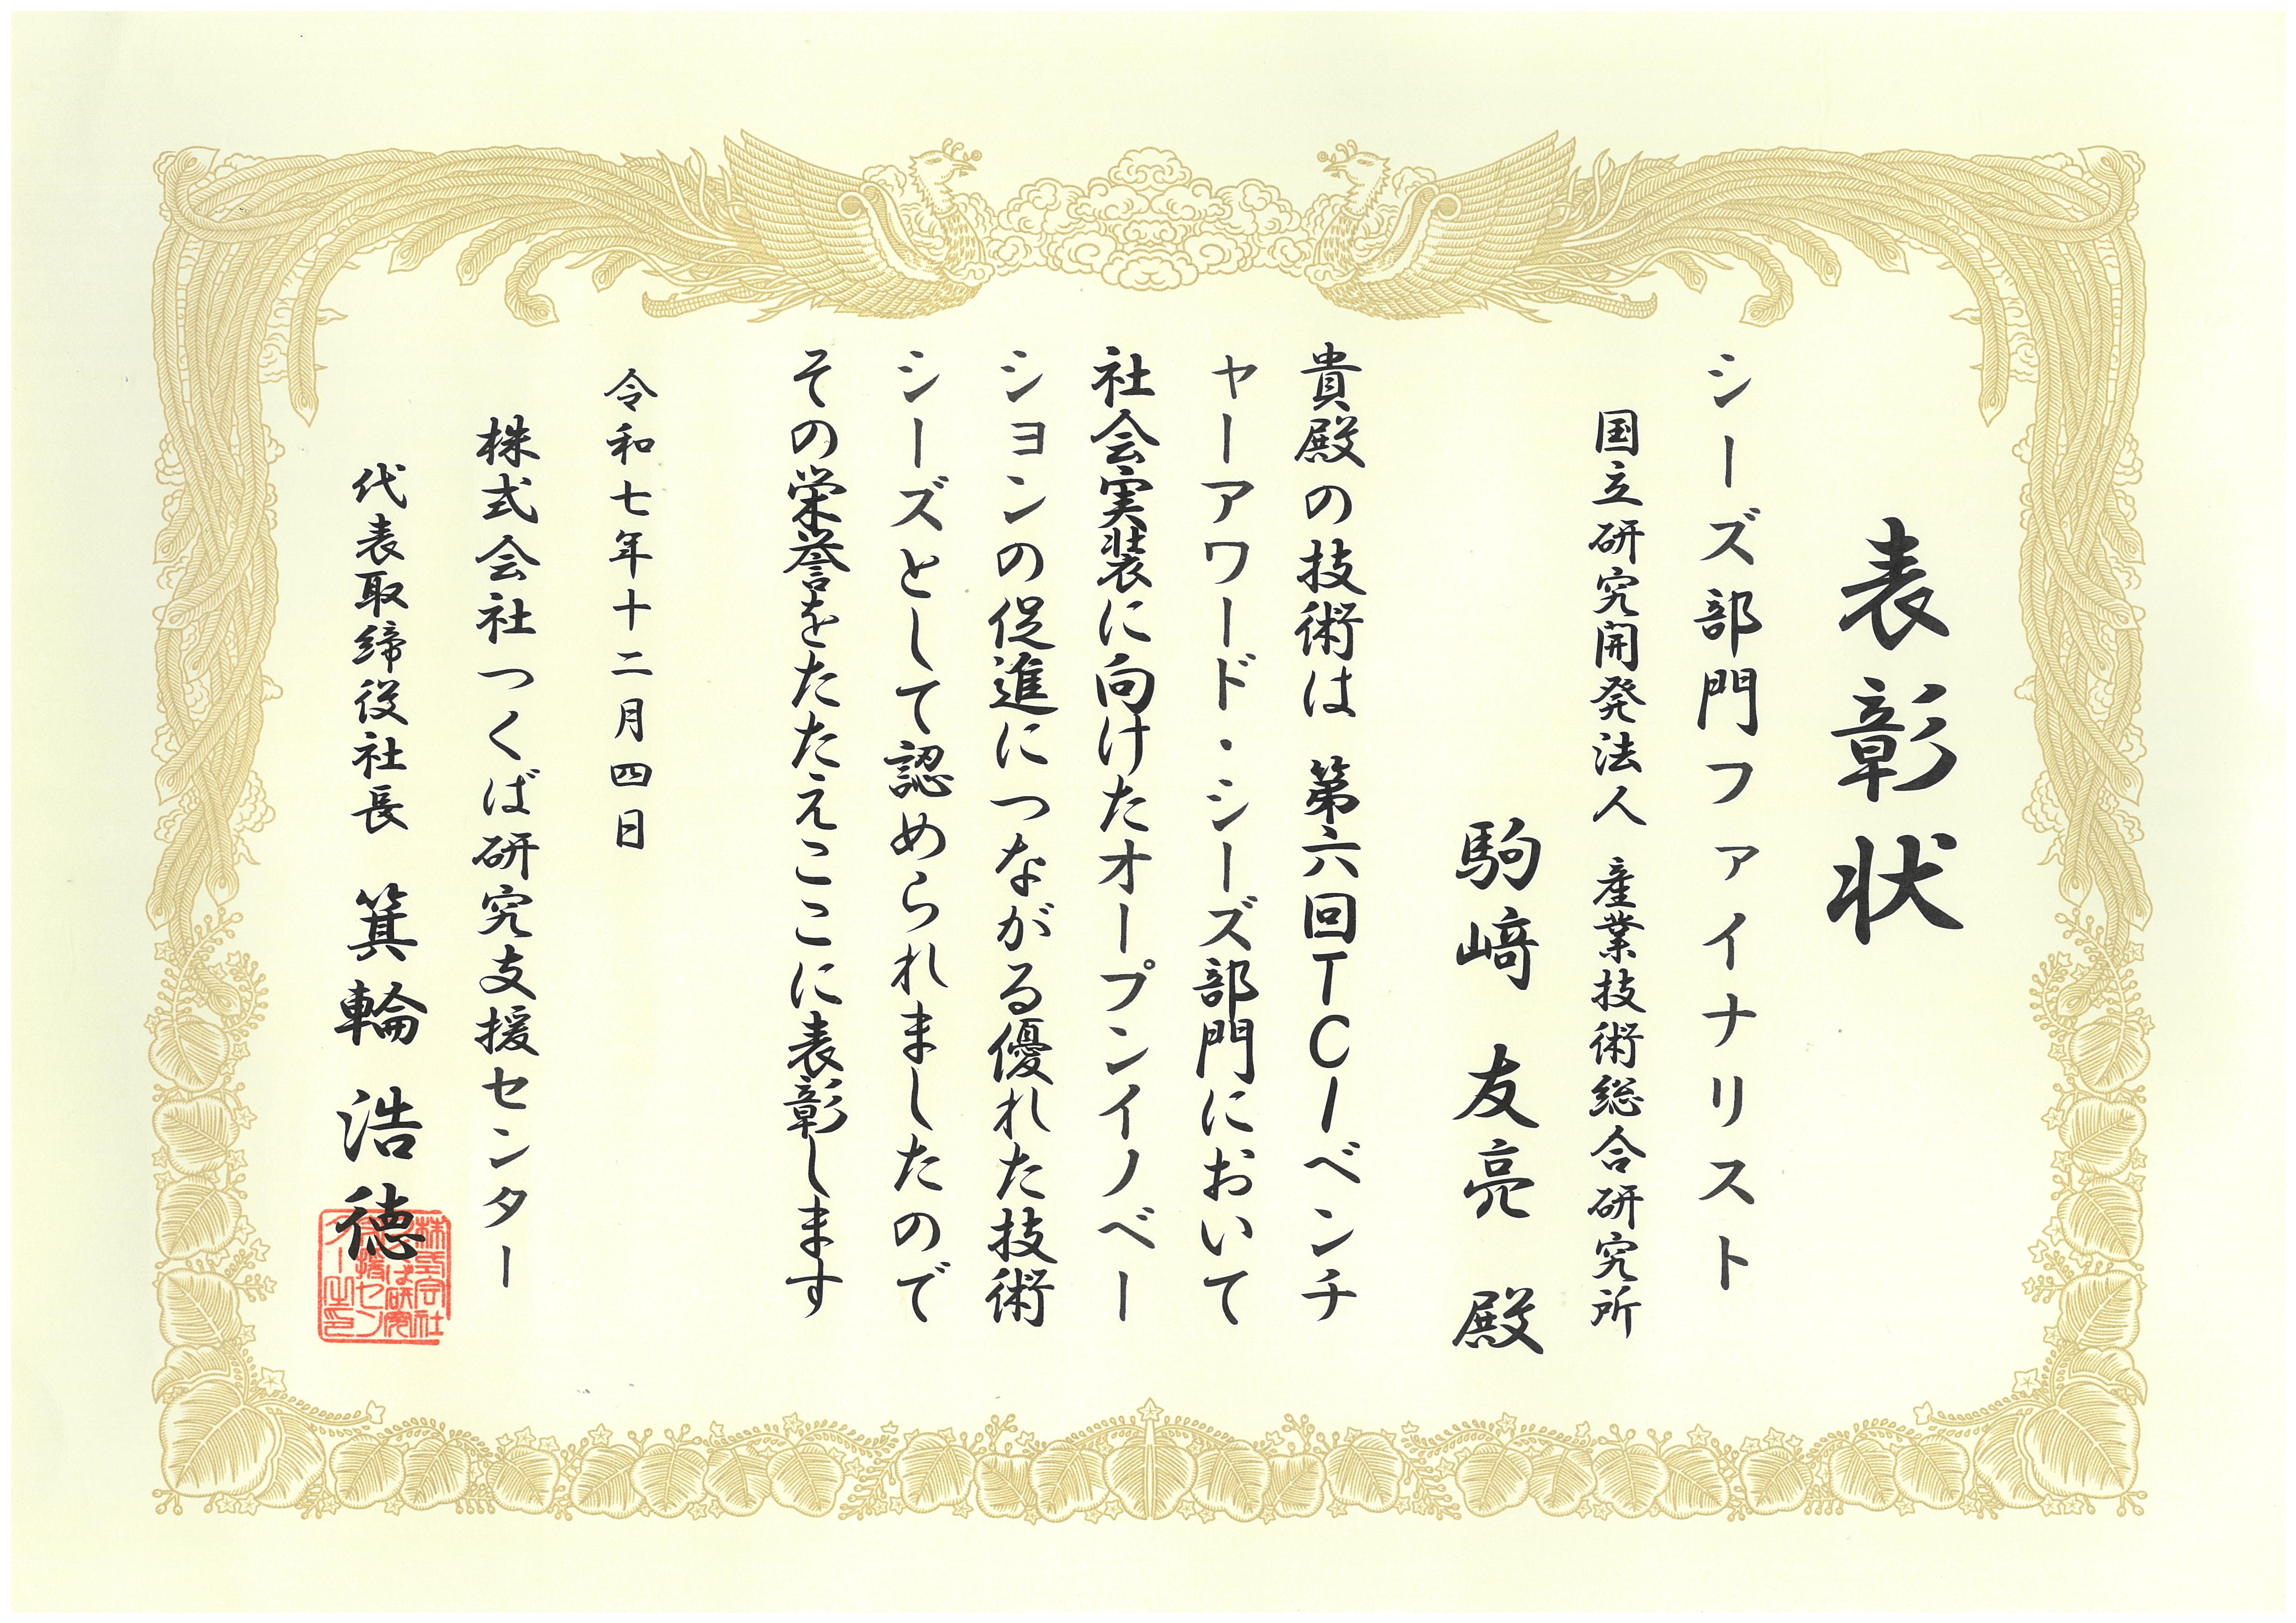 表彰状
シーズ部門ファイナリスト
国立研究開発法人 産業技術総合研究所
駒﨑 友亮 殿
貴殿の技術は 第六回TCIベンチ
ャーアワード・シーズ部門において
社会実装に向けたオープンイノベー
ションの促進につながる優れた技術
シーズとして認められましたので
その栄誉をたたえここに表彰します
令和七年十二月四日
株式会社つくば研究支援センター
代表取締役社長 箕輪浩徳